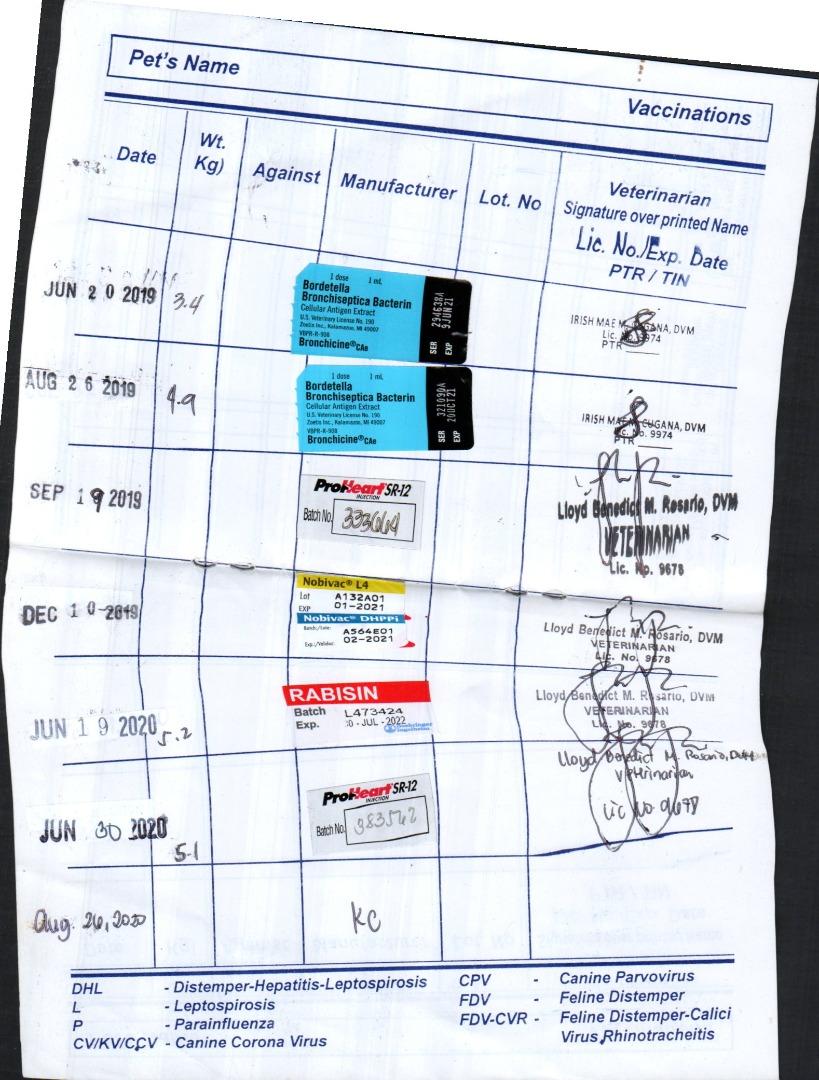 Pet's Name
Vaccinations
Date
Wt.
Kg)
Against
Manufacturer
Lot. No
Veterinarian
Signature over printed Name
Lic. No./Exp. Date
PTR / TIN
JUN 20 2019
3.4
1 dose 1 mL
Bordetella
Bronchiseptica Bacterin
Cellular Antigen Extract
U.S. Veterinary License No. 190
Zoetis Inc., Kalamazoo, MI 49007
VBPR-R-938
Bronchicine®CAe
SER 294638A
EXP 9JUN21
IRISH MAE DVM
Lic. No. 9974
PTR
AUG 26 2019
4.9
1 dose 1 mL
Bordetella
Bronchiseptica Bacterin
Cellular Antigen Extract
U.S. Veterinary License No. 190
Zoetis Inc., Kalamazoo, MI 49007
VBPR-R-938
Bronchicine®CAe
SER 321090A
EXP 20OCT21
IRISH MAE CUGANA, DVM
Lic. No. 9974
PTR
SEP 19 2019
ProHeart SR-12
INJECTION
Batch No. 333664
Lloyd Benedict M. Rosario, DVM
VETERINARIAN
Lic. No. 9678
DEC 10 2019
Nobivac® L4
Lot A132A01
EXP 01-2021
Nobivac® DHPPi
Batch/Lote: A564E01
Exp./Validez: 02-2021
Lloyd Benedict M. Rosario, DVM
VETERINARIAN
Lic. No. 9678
JUN 19 2020
5.2
RABISIN
Batch L473424
Exp. 0-JUL-2022
Boehringer
Ingelheim
Lloyd Benedict M. Rosario, DVM
VETERINARIAN
Lic. No. 9678
JUN 30 2020
5.1
ProHeart SR-12
INJECTION
Batch No. 383562
Lloyd Benedict M. Rosario, DVM
Veterinarian
Lic No 9678
Aug. 26, 2020
KC
DHL - Distemper-Hepatitis-Leptospirosis
L - Leptospirosis
P - Parainfluenza
CV/KV/CCV - Canine Corona Virus
CPV - Canine Parvovirus
FDV - Feline Distemper
FDV-CVR - Feline Distemper-Calici
Virus,Rhinotracheitis